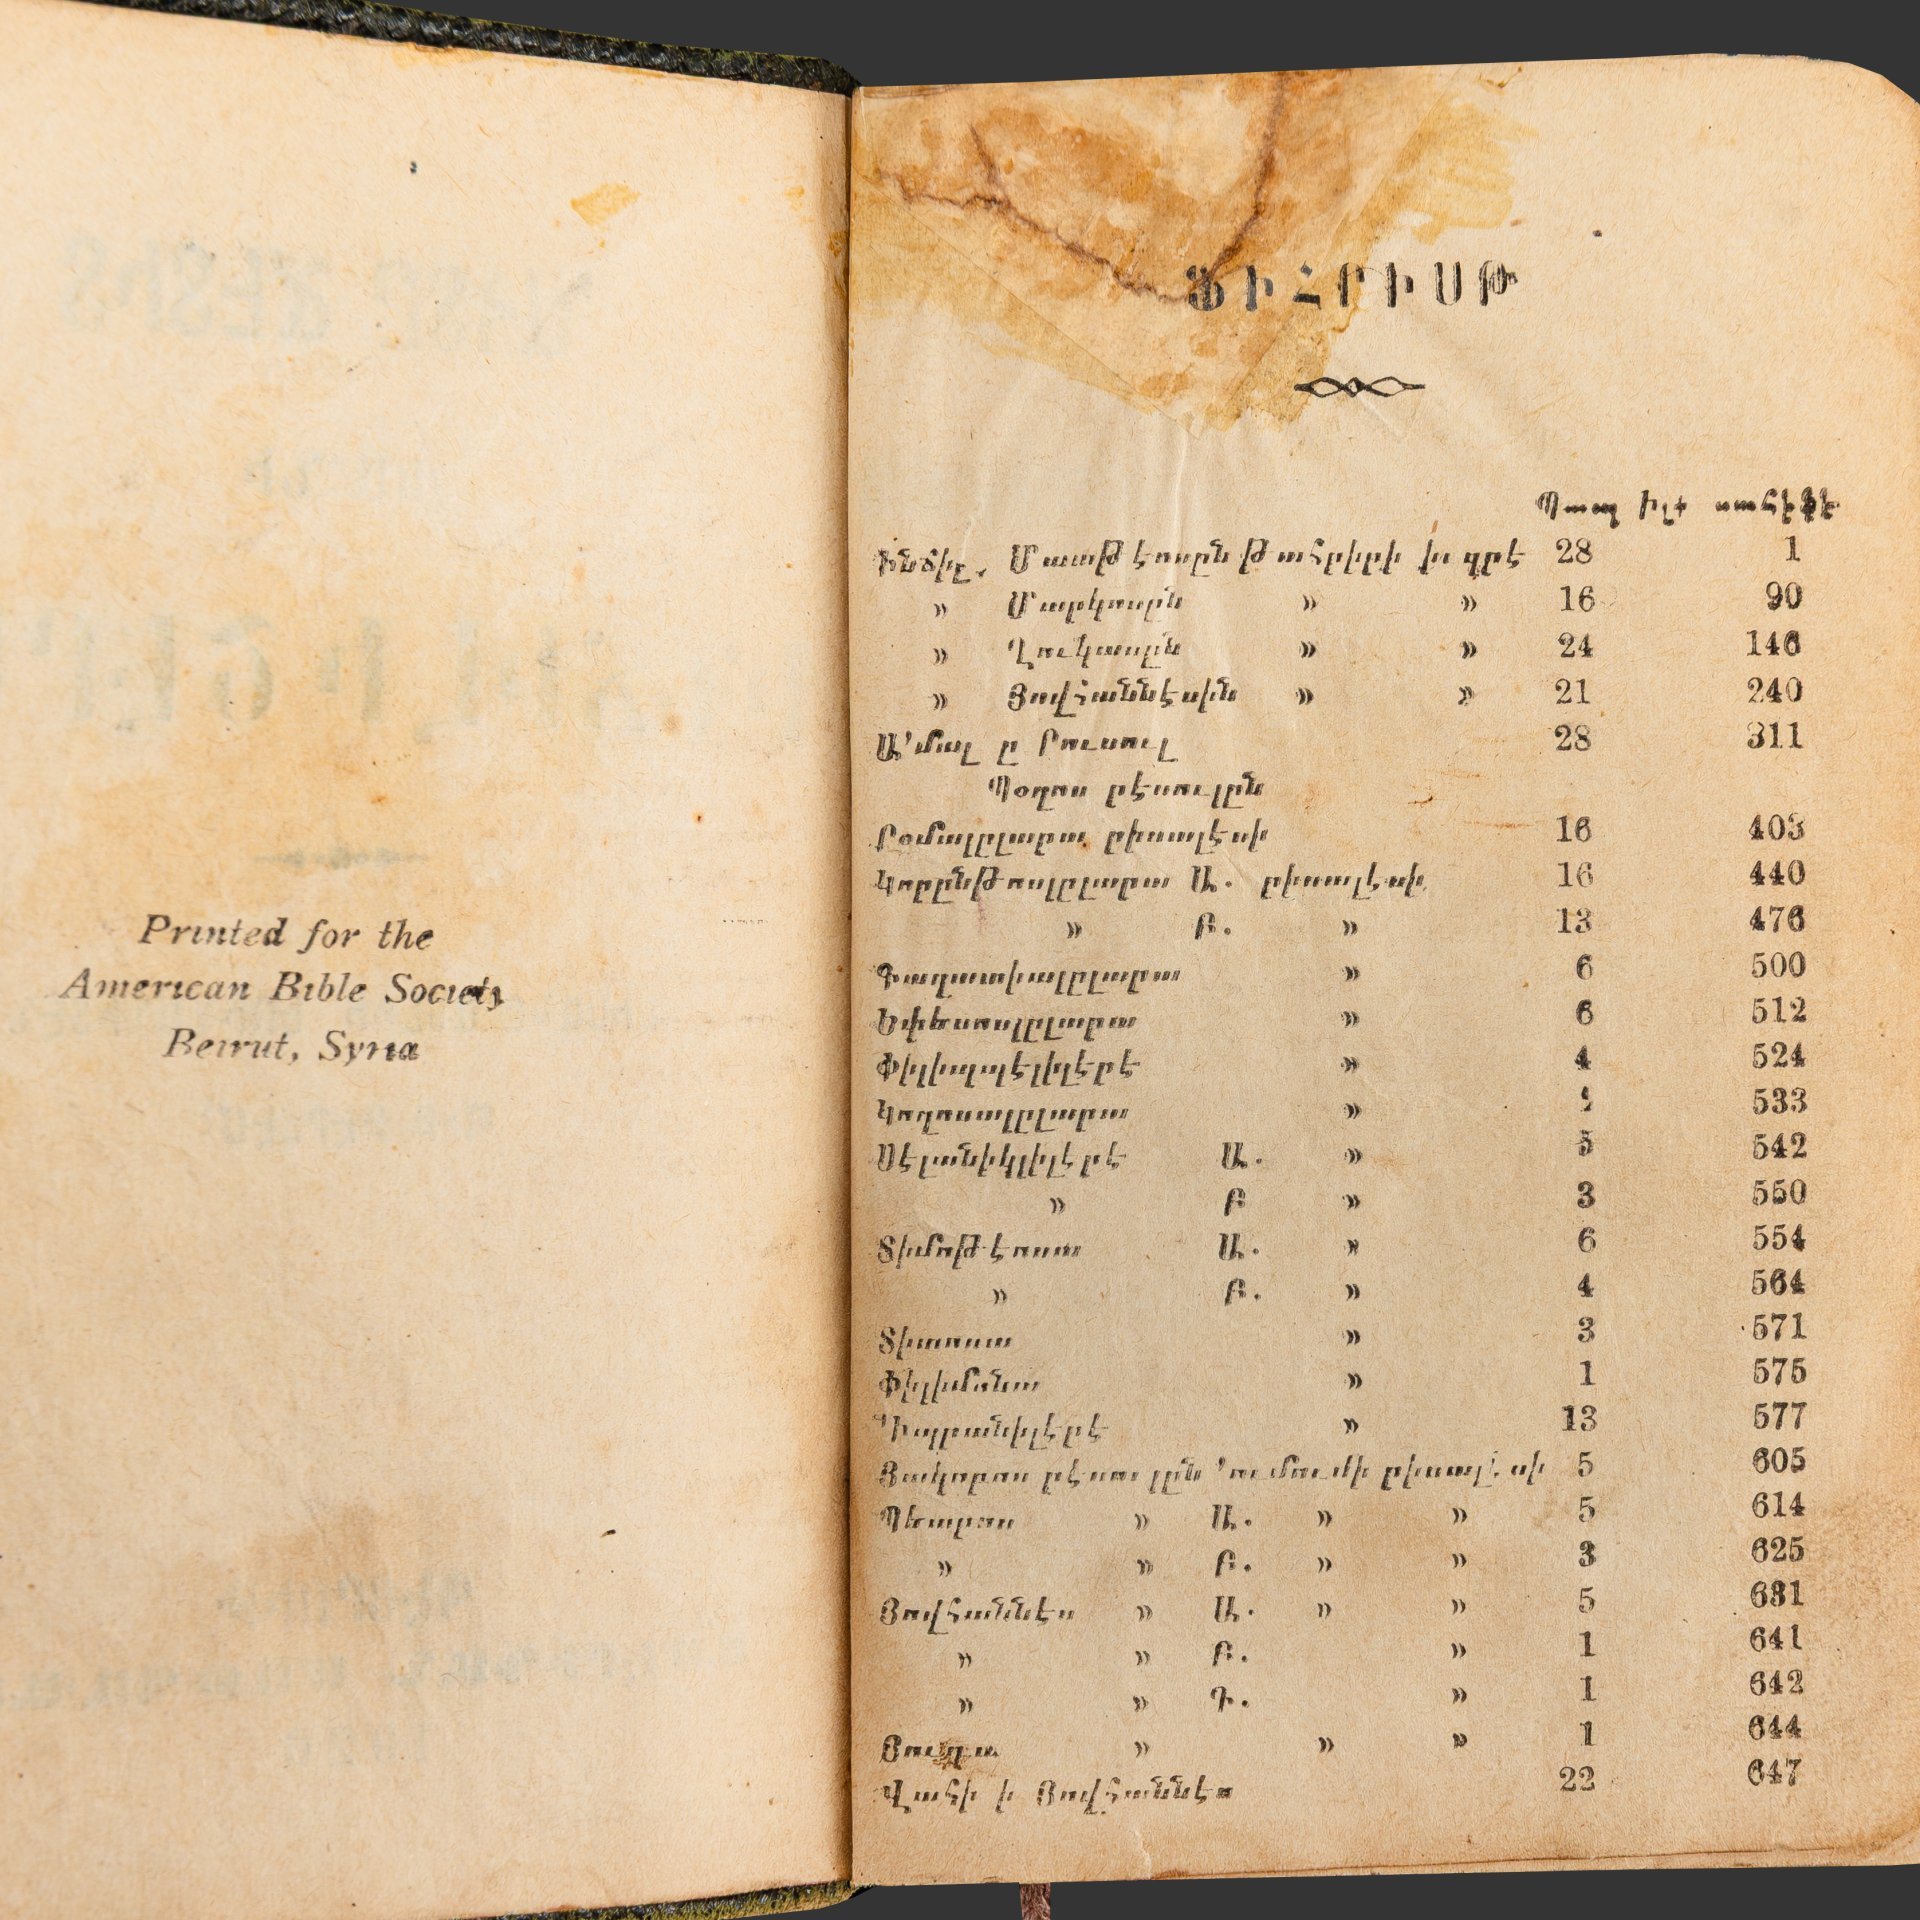 Printed for the
American Bible Society
Beirut, Syria
ՖԻՀՐԻՍԹ
Պապ իլէ սահէֆէ
Ինճիլ, Մատթէոսըն թահրիրի իւզրէ 28 1
» Մարկոսըն » » 16 90
» Ղուկասըն » » 24 146
» Յովհաննէսին » » 21 240
Ա՚մալ ը Րուսուլ 28 311
Պօղոս րէսուլըն
Րօմալըլարա րիսալէսի 16 403
Կորընթոսլըլարա Ա. րիսալէսի 16 440
» Բ. » 13 476
Գաղատիալըլարա » 6 500
Եփեսոսլըլարա » 6 512
Փիլիպպէլիլէրէ » 4 524
Կողոսալըլարա » 533
Սէլանիկլիլէրէ Ա. » 5 542
» Բ » 3 550
Տիմոթէոսա Ա. » 6 554
» Բ. » 4 564
Տիտոսա » 3 571
Փիլիմոնա » 1 575
Իպրանիլէրէ » 13 577
Յակոբոս րէսուլըն ՚ումումի րիսալէսի 5 605
Պետրոս » Ա. » » 5 614
» » Բ. » » 3 625
Յովհաննէս » Ա. » » 5 631
» » Բ. » 1 641
» » Գ. » 1 642
Յուդա » » » 1 644
Վահի ի Յովհաննէս 22 647